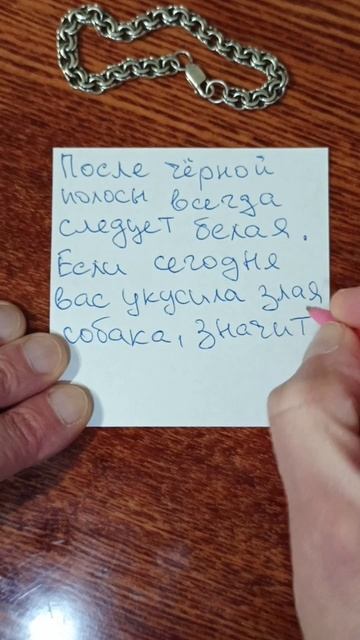 После чёрной
полосы всегда
следует белая.
Если сегодня
вас укусила злая
собака, значит